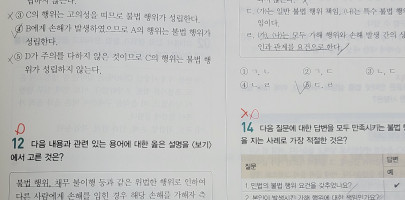 ③ C의 행위는 고의성을 띠므로 불법 행위가 성립한다.
④ B에게 손해가 발생하였으므로 A의 행위는 불법 행위가
성립한다.
⑤ D가 주의를 다하지 않은 것이므로 C의 행위는 불법 행
위가 성립하지 않는다.
12 다음 내용과 관련 있는 용어에 대한 옳은 설명을 <보기>
에서 고른 것은?
불법 행위, 채무 불이행 등과 같은 위법한 행위로 인하여
다른 사람에게 손해를 입힌 경우 해당 손해를 가해자 측
일이다.
모두 가해 행위와 손해 발생 간의 상
인과 관계를 요건으로 한다.
① ㄱ, ㄴ
② ㄱ, ㄷ
③ ㄴ, ㄷ
④ ㄴ, ㄹ
14 다음 질문에 대한 답변을 모두 만족시키는 불법
을 지는 사례로 가장 적절한 것은?
질문
답변
예
1. 민법의 불법 행위 요건을 갖추었나요?